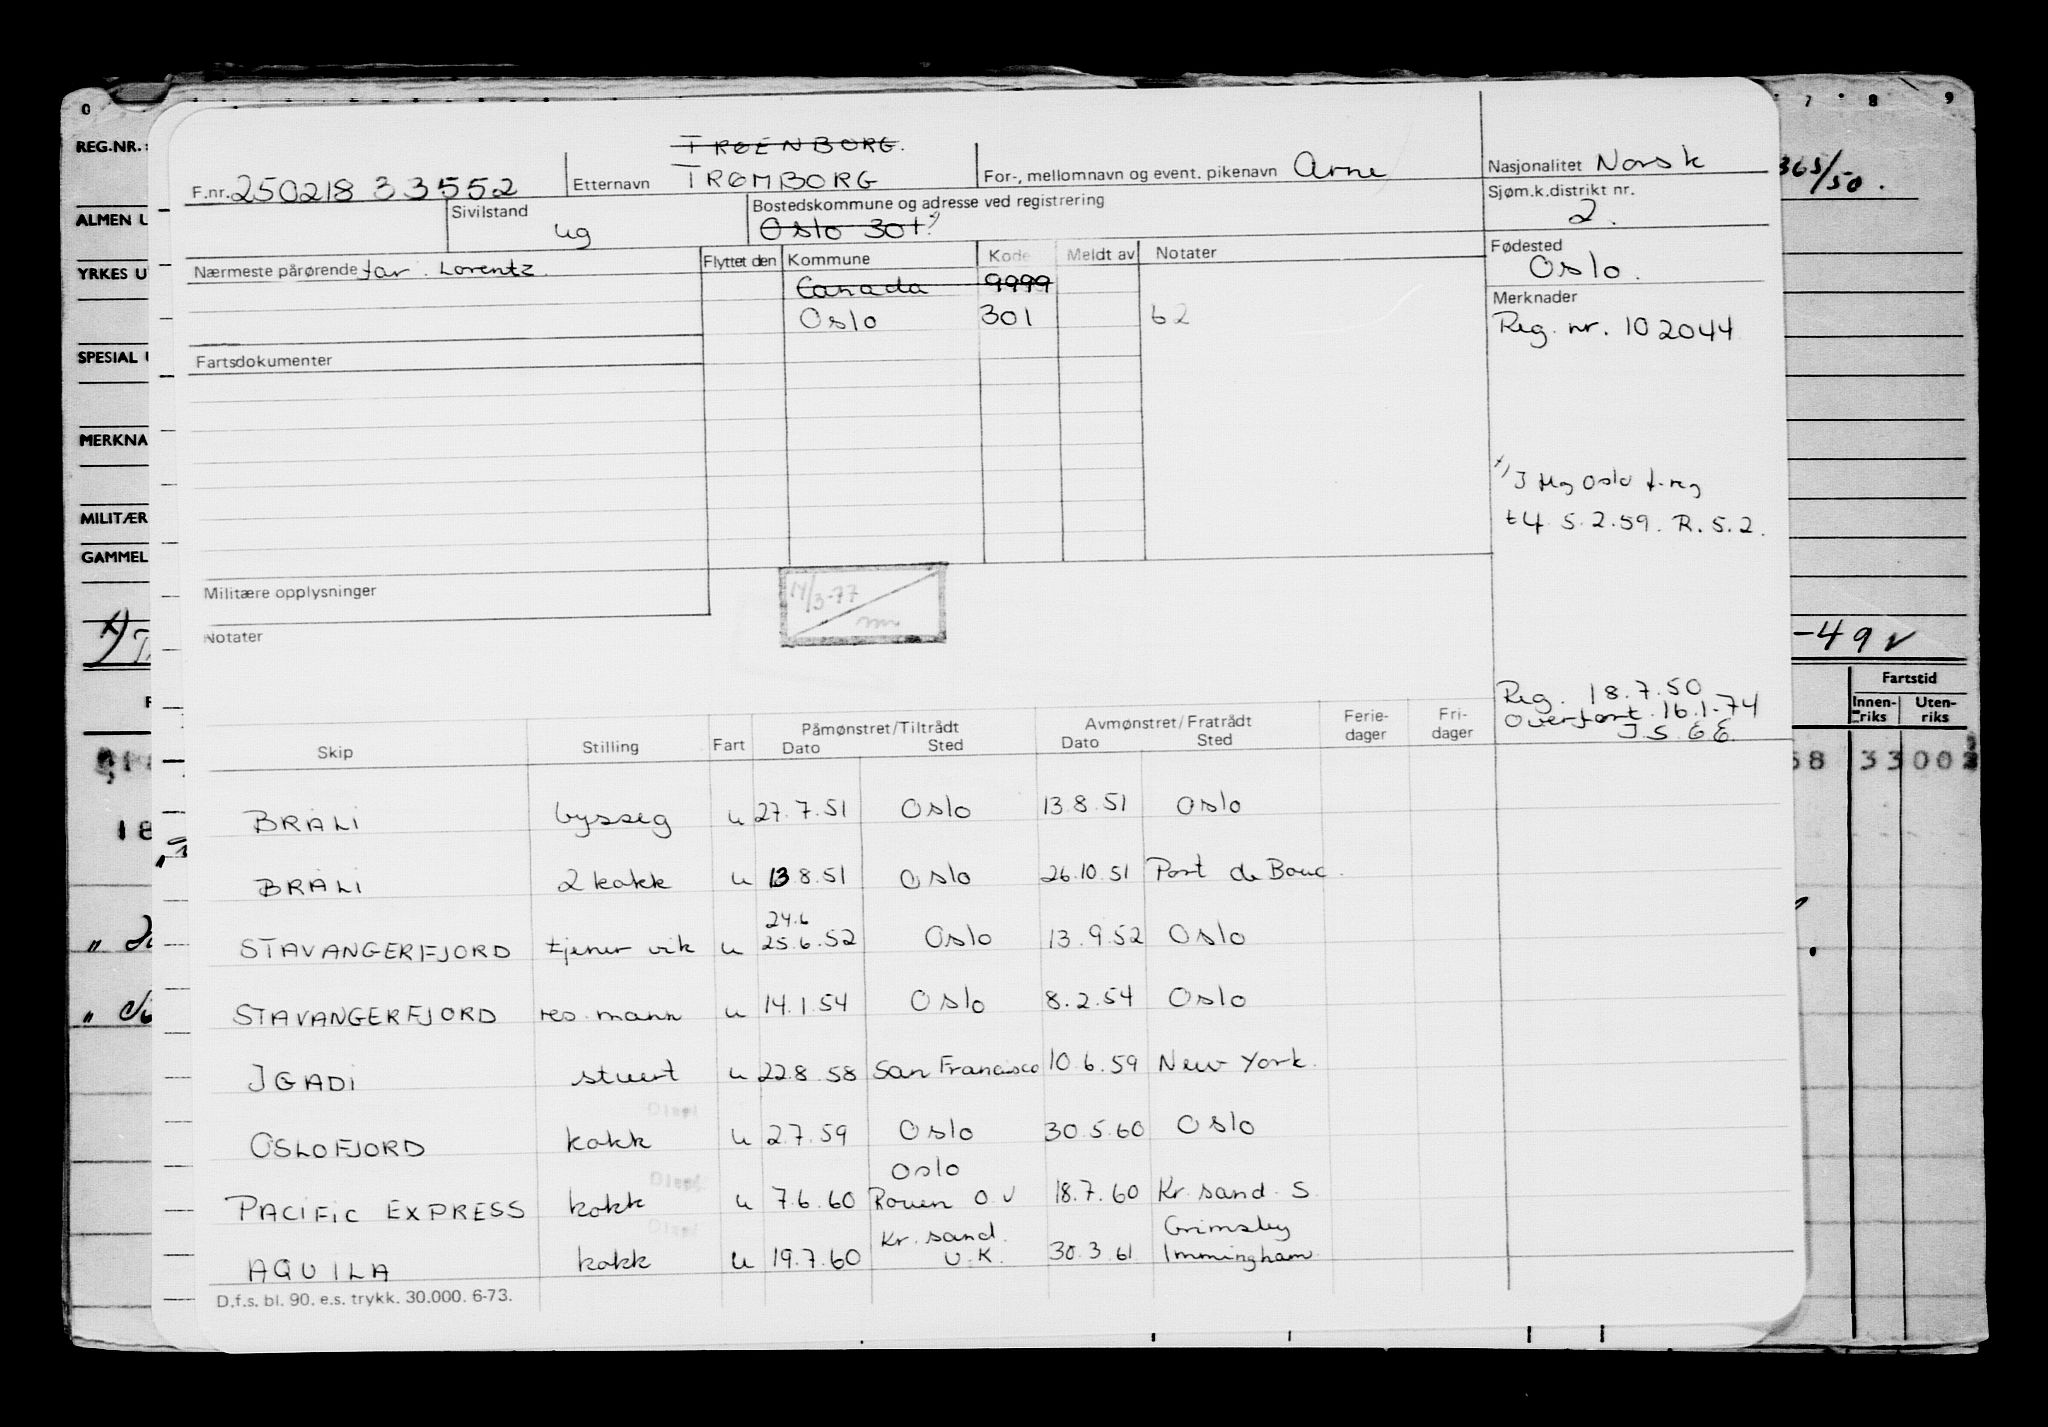 0 7 8 9
REG.NR. 365/50.
ALMEN U
YRKES U
SPESIAL U
MERKNA
MILITÆR
GAMMEL
-49 v
Fartstid
Innen-riks Uten-riks
TRØENBORG.
F.nr. 250218 33552 Etternavn TRØMBORG For-, mellomnavn og event. pikenavn Arne Nasjonalitet Norsk
Sivilstand ug Bostedskommune og adresse ved registrering Oslo 301 x) Sjøm.k.distrikt nr. 2.
Nærmeste pårørende far. Lorentz Flyttet den Kommune Kode Meldt av Notater Fødested Oslo.
Canada 9999
Oslo 301 62
Merknader
Reg. nr. 102044
Fartsdokumenter
x) I flg Oslo f.reg
t4 5.2.59. R.5.2.
Militære opplysninger
14/3-77
Notater
Reg. 18.7.50
Overført. 16.1-74
Skip Stilling Fart Påmønstret/Tiltrådt Dato Sted Avmønstret/Fratrådt Dato Sted Ferie-dager Fri-dager
BRALI bysseg u 27.7.51 Oslo 13.8.51 Oslo
BRALI 2 kokk u 13 8.51 Oslo 26.10.51 Port de Bouc.
24.6
STAVANGERFJORD tjener vik u 25.6.52 Oslo 13.9.52 Oslo
STAVANGERFJORD res. mann u 14.1.54 Oslo 8.2.54 Oslo
IGADI stuert u 22.8.58 San Francisco 10.6.59 New York.
OSLOFJORD kokk u 2.7.59 Oslo 30.5.60 Oslo
Oslo
PACIFIC EXPRESS kokk u 7.6.60 Rouen O.V 18.7.60 Kr.sand. S
Kr. sand. Grimsby
AQUILA kokk u 19.7.60 U.K. 30.3.61 Immingham
D.f.s. bl. 90. e.s. trykk. 30.000. 6-73.